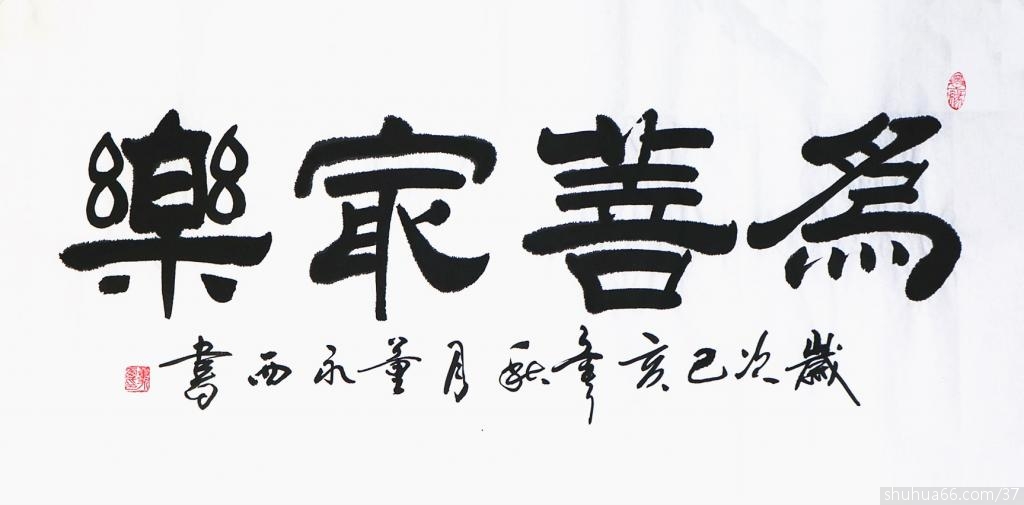 為善㝡樂
歲次己亥年秋月董永西書
shuhua66.com/37